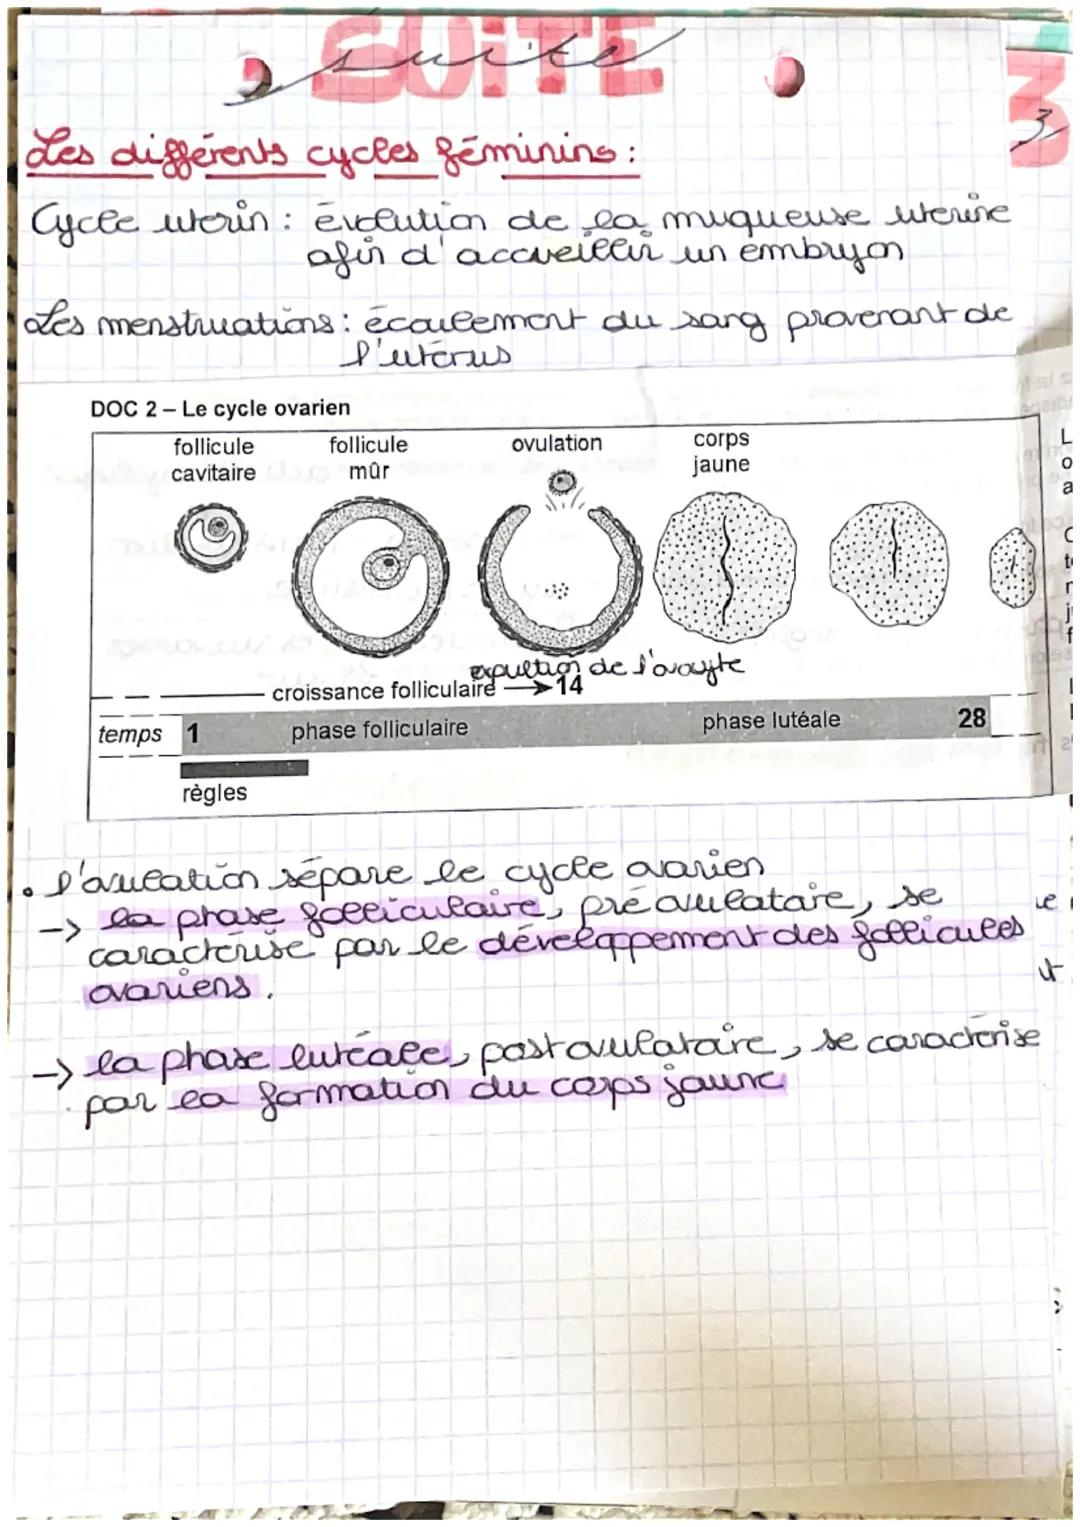 SUITE
suite
3
3
Les différents cycles féminins :
Cycle utérin : évolution de la muqueuse utérine
afin d'accueillir un embryon
Les menstruations : écoulement du sang provenant de
l'utérus
DOC 2 – Le cycle ovarien
follicule cavitaire
follicule mûr
ovulation
corps jaune
expultion de l'ovocyte
croissance folliculaire → 14
temps 1 phase folliculaire phase lutéale 28
règles
• l'ovulation sépare le cycle ovarien
-> la phase folliculaire, pré ovulatoire, se
caractérise par le développement des follicules
ovariens.
-> la phase lutéale, postovulatoire, se caractérise
par la formation du corps jaune